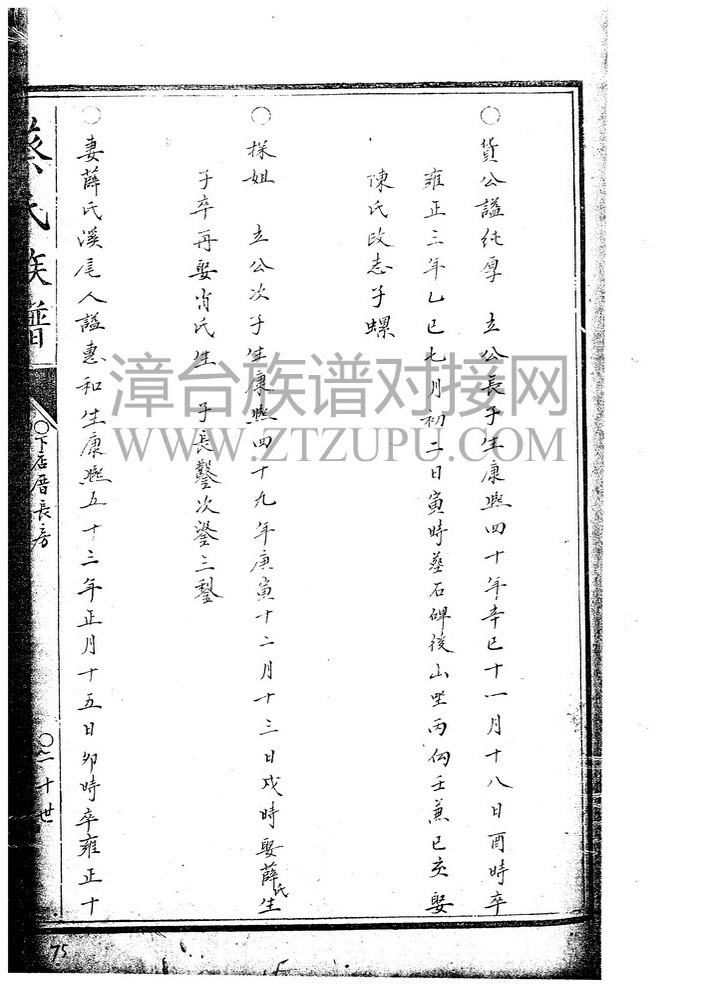 ○貨公諡純厚　立公長子生康熙四十年辛巳十一月十八日酉時卒
雍正三年乙巳七月初二日寅時墓石碑後山坐丙向壬兼巳亥娶
陳氏改志子螺
○採姐　立公次子生康熙四十九年庚寅十二月十三日戌時娶薛氏生
子卒再娶肖氏生　子長鑿次鋆三鏨
○妻薛氏溪尾人諡惠和生康熙五十三年正月十五日卯時卒雍正十
蔡氏族譜
○下店厝長房
○二十世
75
漳台族谱对接网
WWW.ZTZUPU.COM